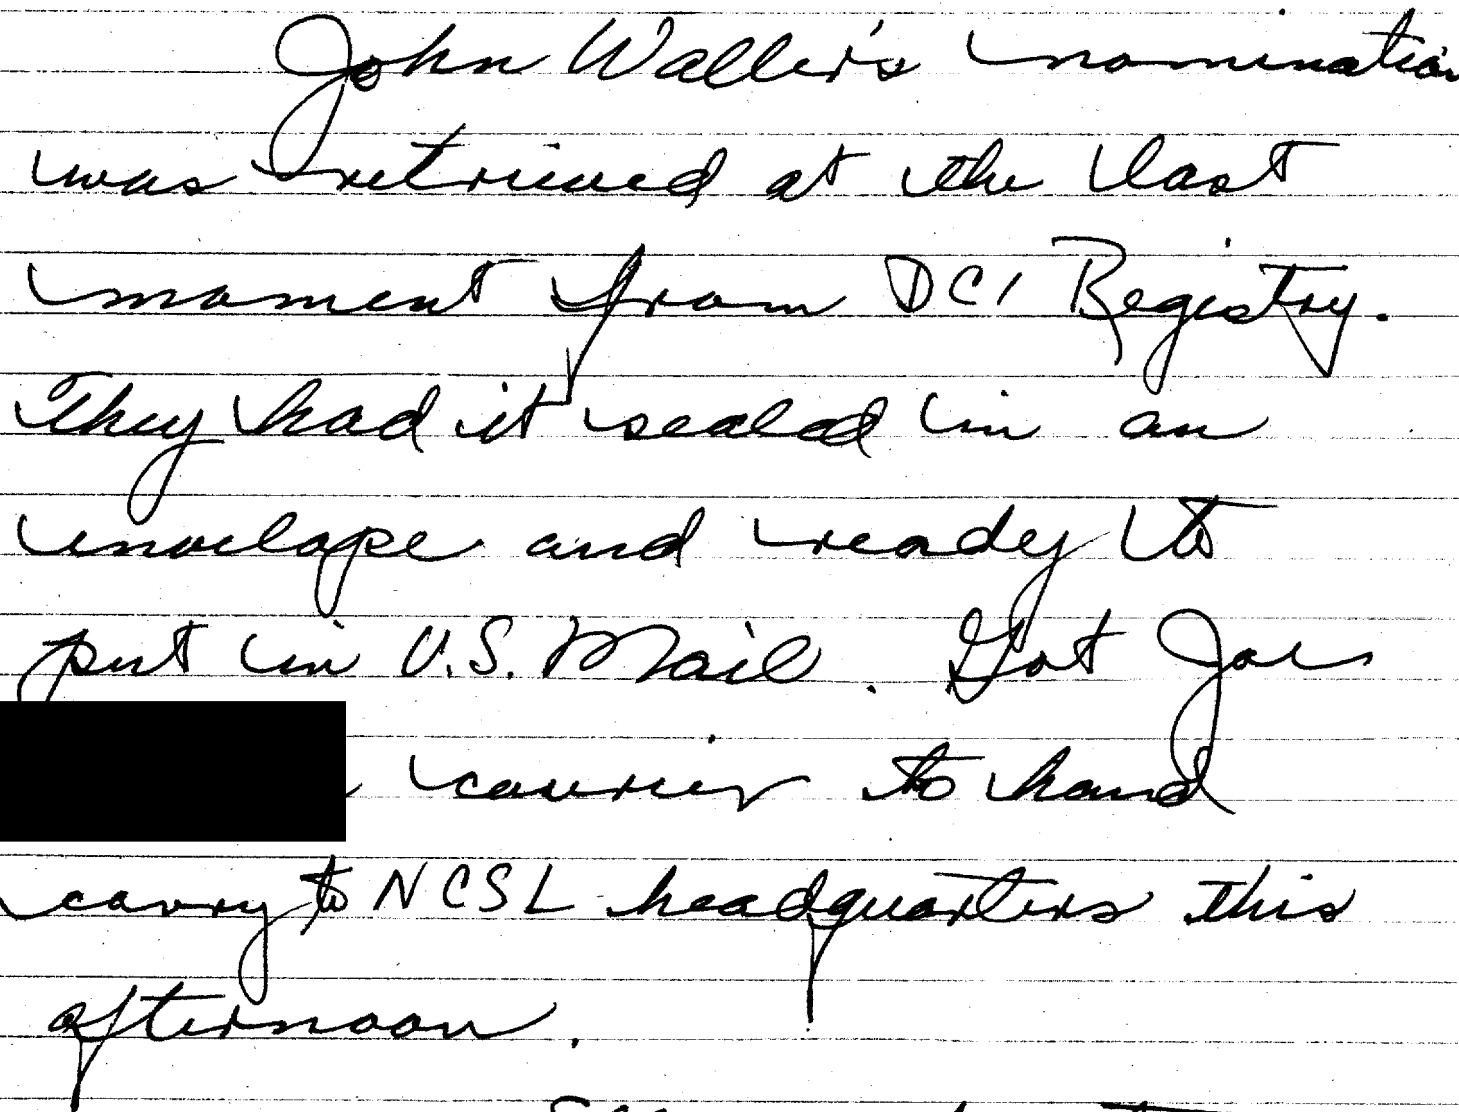 John Waller's nomination
was retrieved at the last
moment from DCI Registry.
They had it sealed in an
envelope and ready to
put in U.S. Mail. Got Joe
courier to hand
carry to NCSL headquarters this
afternoon.